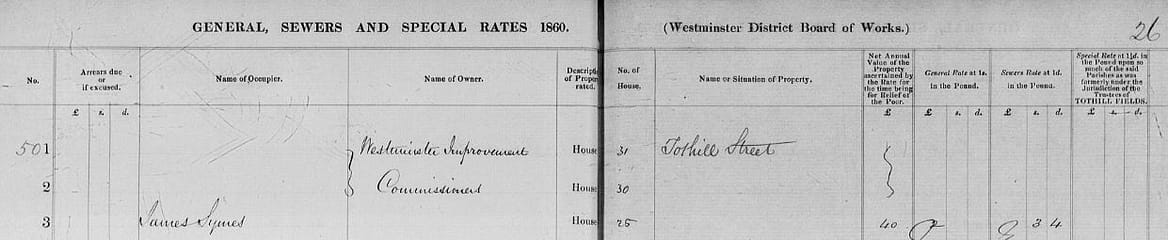 GENERAL, SEWERS AND SPECIAL RATES 1860. (Westminster District Board of Works.) 26
No. Arrears due or if excused. Name of Occupier. Name of Owner. Descripti of Proper rated. No. of House. Name or Situation of Property. Net Annual Value of the Property ascertained by the Rate for the time being for Relief of the Poor. General Rate at 1s. in the Pound. Sewers Rate at 1d. in the Pound. Special Rate at 1½d. in the Pound upon so much of the said Parishes as was formerly under the Jurisdiction of the Trustees of TOTHILL FIELDS.
£ s. d. £ £ s. d. £ s. d. £ s. d.
501 Westminster Improvement House 31 Tothill Street
2 Commissioners House 30
3 James Symes House 25 40 2 3 4